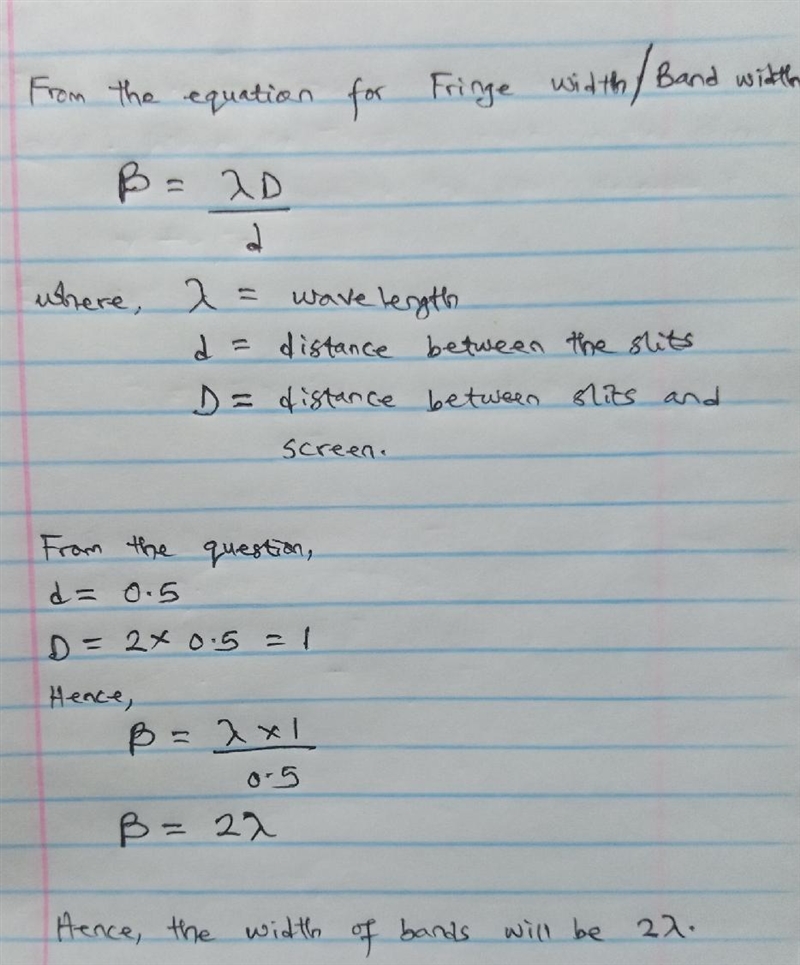 From the equation for Fringe width/Band width
β = λD
d
where, λ = wavelength
d = distance between the slits
D = distance between slits and
screen.
From the question,
d = 0.5
D = 2× 0.5 = 1
Hence,
β = λ × 1
0.5
β = 2λ
Hence, the width of bands will be 2λ.